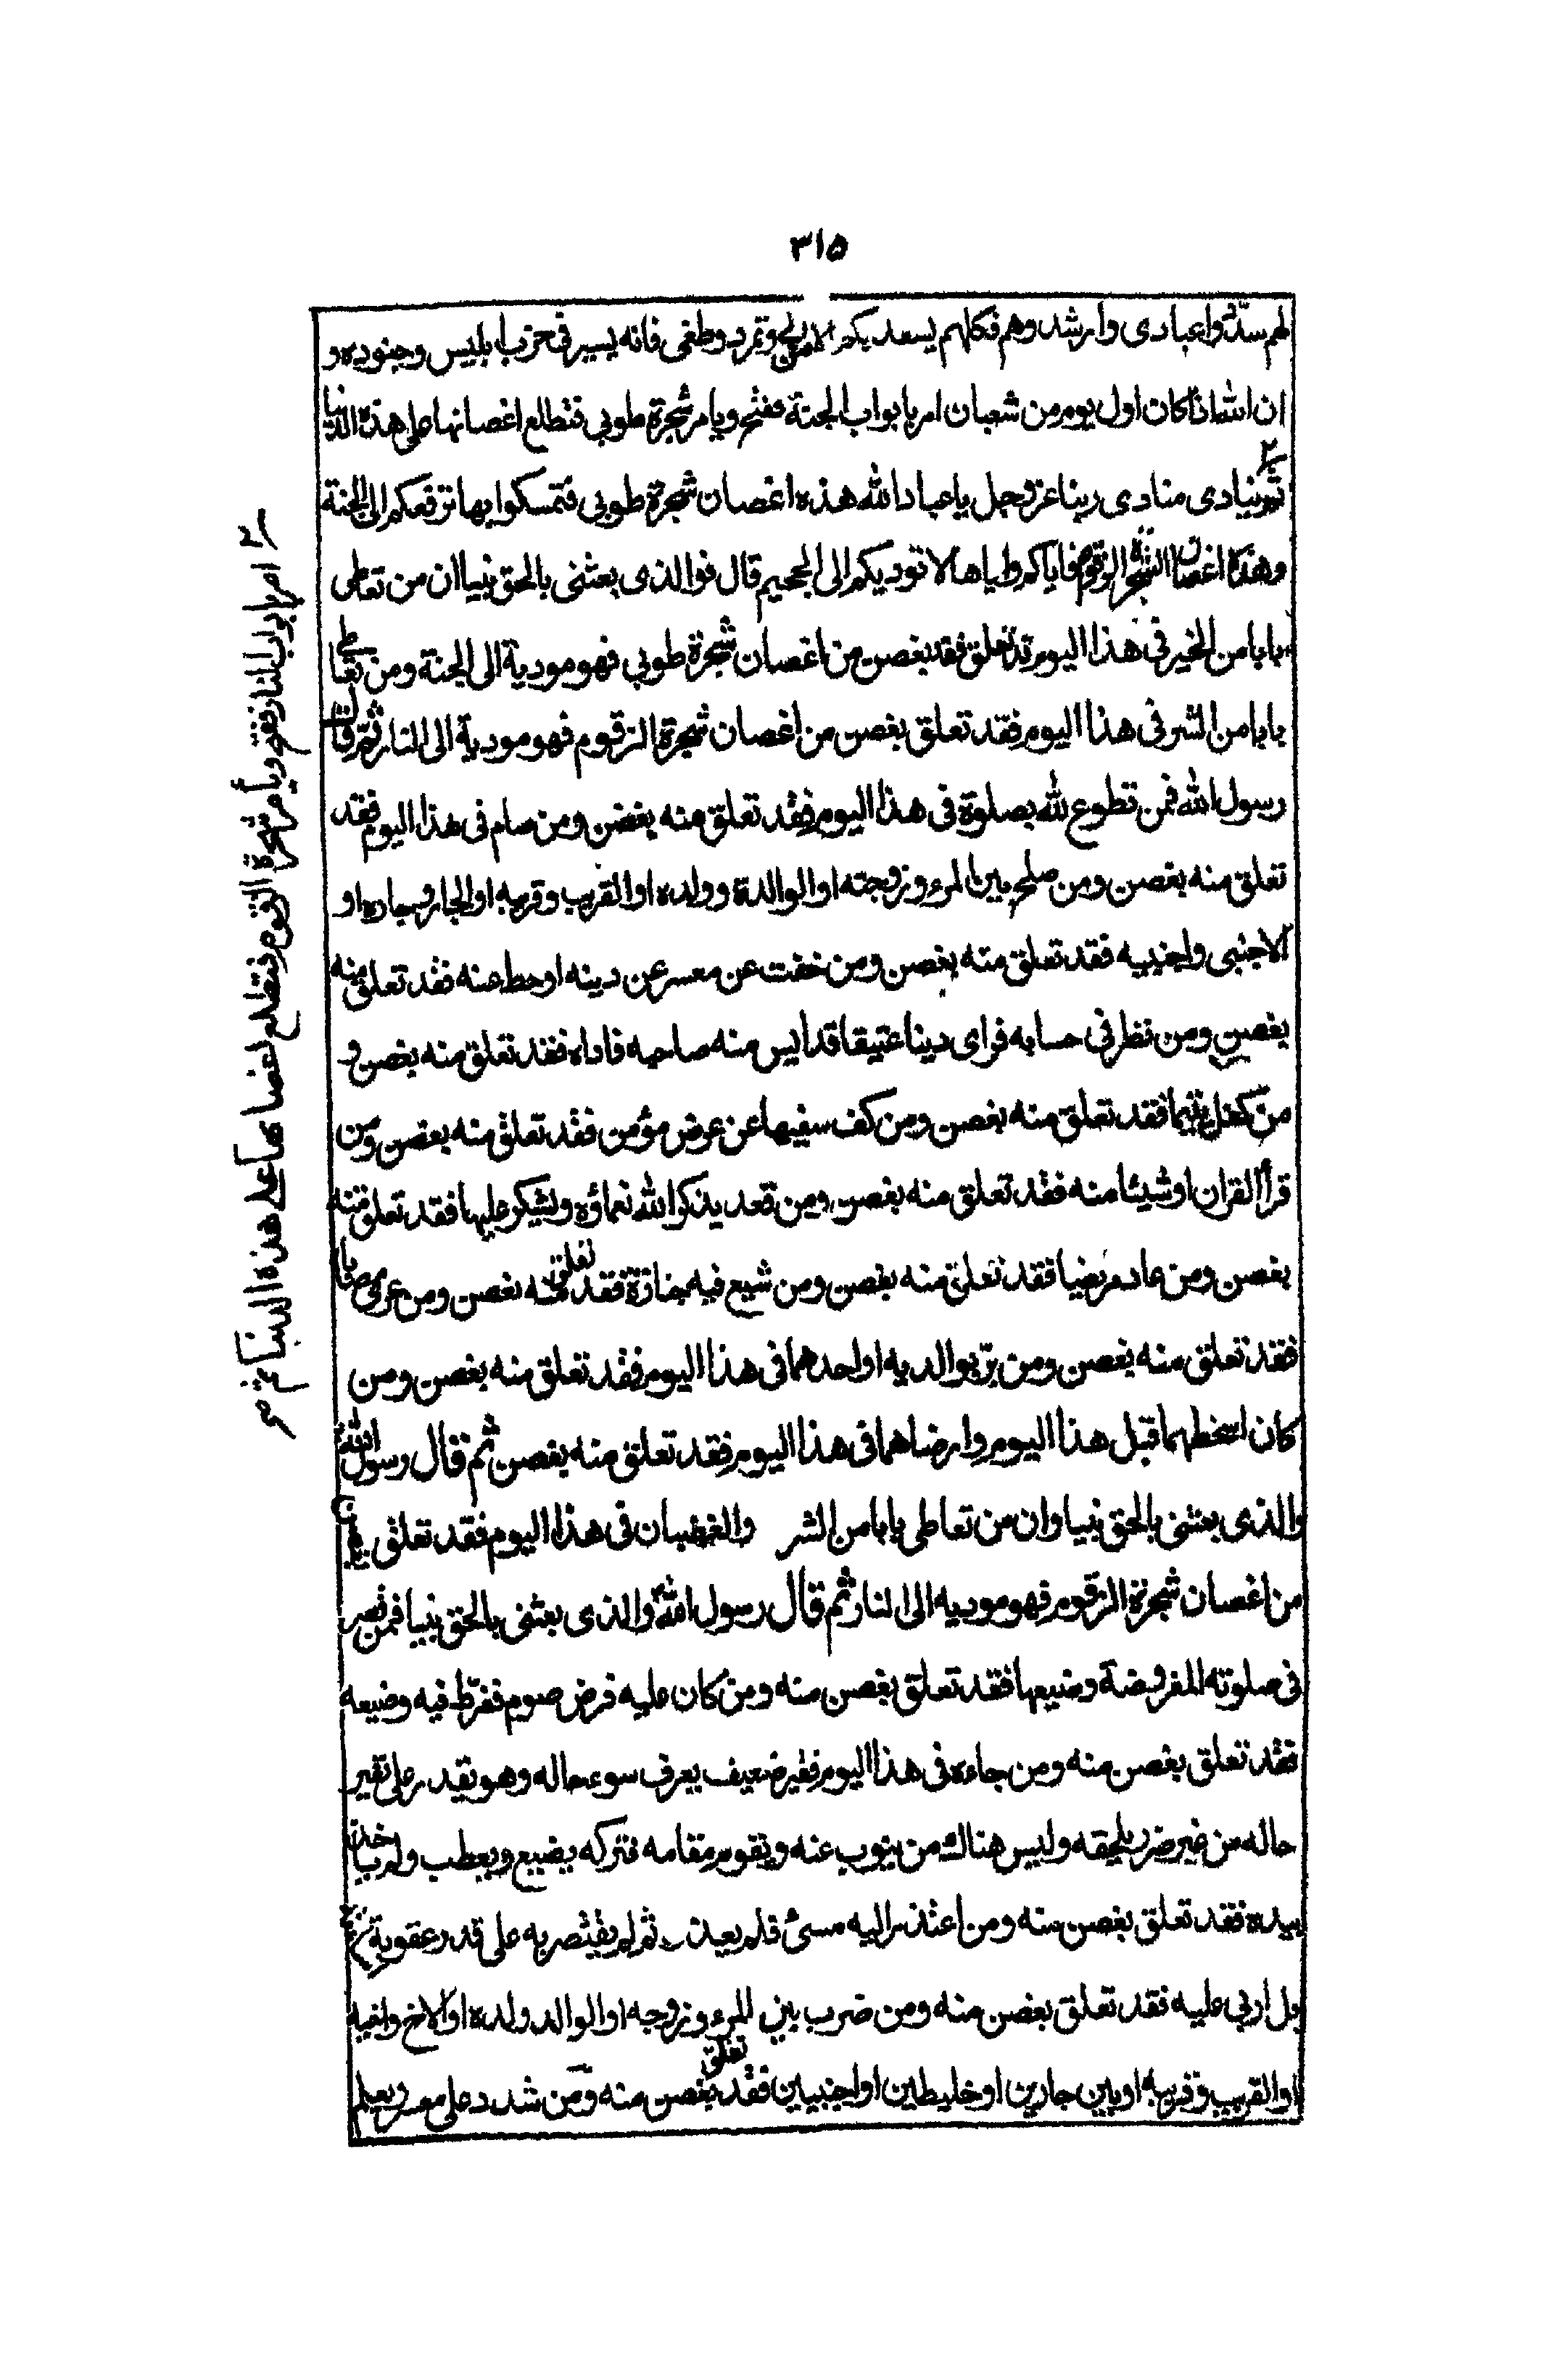 ٣١٥
لهم سدّدوا عبادى وارشدوهم فكلهم يسعد بكم الا من ابى وتمرد وطغى فانه يسير فى حزب ابليس وجنوده و
ان الله اذا كان اول يوم من شعبان امر بابواب الجنة ففتح ويامر شجرة طوبى فتطلع اغصانها على هذه الدنيا
ثم ينادى منادى ربنا عز وجل يا عباد الله هذه اغصان شجرة طوبى فتمسكوا بها ترفعكم الى الجنة
وهذه اغصان الشجرة الزقوم فاياكم واياها لا توديكم الى الجحيم قال فوالذى بعثنى بالحق نبيا ان من تعاطى
بابا من الخير فى هذا اليوم قد تعلق فقد بغصن من اغصان شجرة طوبى فهو مودية الى الجنة ومن تعاطى
بابا من الشر فى هذا اليوم فقد تعلق بغصن من اغصان شجرة الزقوم فهو مودية الى النار ثم قال
رسول الله فمن تطوع لله بصلوة فى هذا اليوم فقد تعلق منه بغصن ومن صام فى هذا اليوم فقد
تعلق منه بغصن ومن صلح بين المرء وزوجته او الوالدة وولده او القريب وقريبه او الجار وجاره او
الاجنبى واجنبيه فقد تعلق منه بغصن ومن خفت عن معسر عن دينه او حط عنه فقد تعلق منه
بغصن ومن نظر فى حسابه فراى دينا عتيقا قد ايس منه صاحبه فاداه فقد تعلق منه بغصن و
من كفل يتيما فقد تعلق منه بغصن ومن كف سفيها عن عرض مؤمن فقد تعلق منه بغصن ومن
قرأ القران او شيئا منه فقد تعلق منه بغصن ومن قعد يذكر الله نعماؤه ويشكر عليها فقد تعلق منه
بغصن ومن عاد مريضا فقد تعلق منه بغصن ومن شيع فيه جنازة فقد تعلق منه بغصن ومن عزى مصابا
فقد تعلق منه بغصن ومن برّ بوالديه او احدهما فى هذا اليوم فقد تعلق منه بغصن ومن
كان اسخطهما قبل هذا اليوم وارضاهما فى هذا اليوم فقد تعلق منه بغصن ثم قال رسول الله
والذى بعثنى بالحق نبيا وان من تعاطى بابا من الشر والغضبان فى هذا اليوم فقد تعلق بغصن
من اغصان شجرة الزقوم فهو موديه الى النار ثم قال رسول الله والذى بعثنى بالحق نبيا فمن قصر
فى صلوته المفروضة وضيعها فقد تعلق بغصن منه ومن كان عليه فرض صوم ففرّط فيه وضيعه
فقد تعلق بغصن منه ومن جاءه فى هذا اليوم فقير ضعيف يعرف سوء حاله وهو يقدر على تغير
حاله من غير ضرر يلحقه وليس هناك من ينوب عنه ويقوم مقامه فتركه يضيع ويعطب ولم ياخذ
بيده فقد تعلق بغصن منه ومن اعتذر اليه مسئ فلم يعذر ثم لم يقتصر به على قدر عقوبة
بل اربى عليه فقد تعلق بغصن منه ومن ضرب بين المرء وزوجه او الوالد ولده او الاخ واخيه
او القريب وقريبه او بين جارين او خليطين او اجنبيين فقد تعلق بغصن منه ومن شدد على معسر ويعلم
امر بابواب النار فتفتح ويأمر شجرة الزقوم فتطلع اغصانها على هذه الدنيا